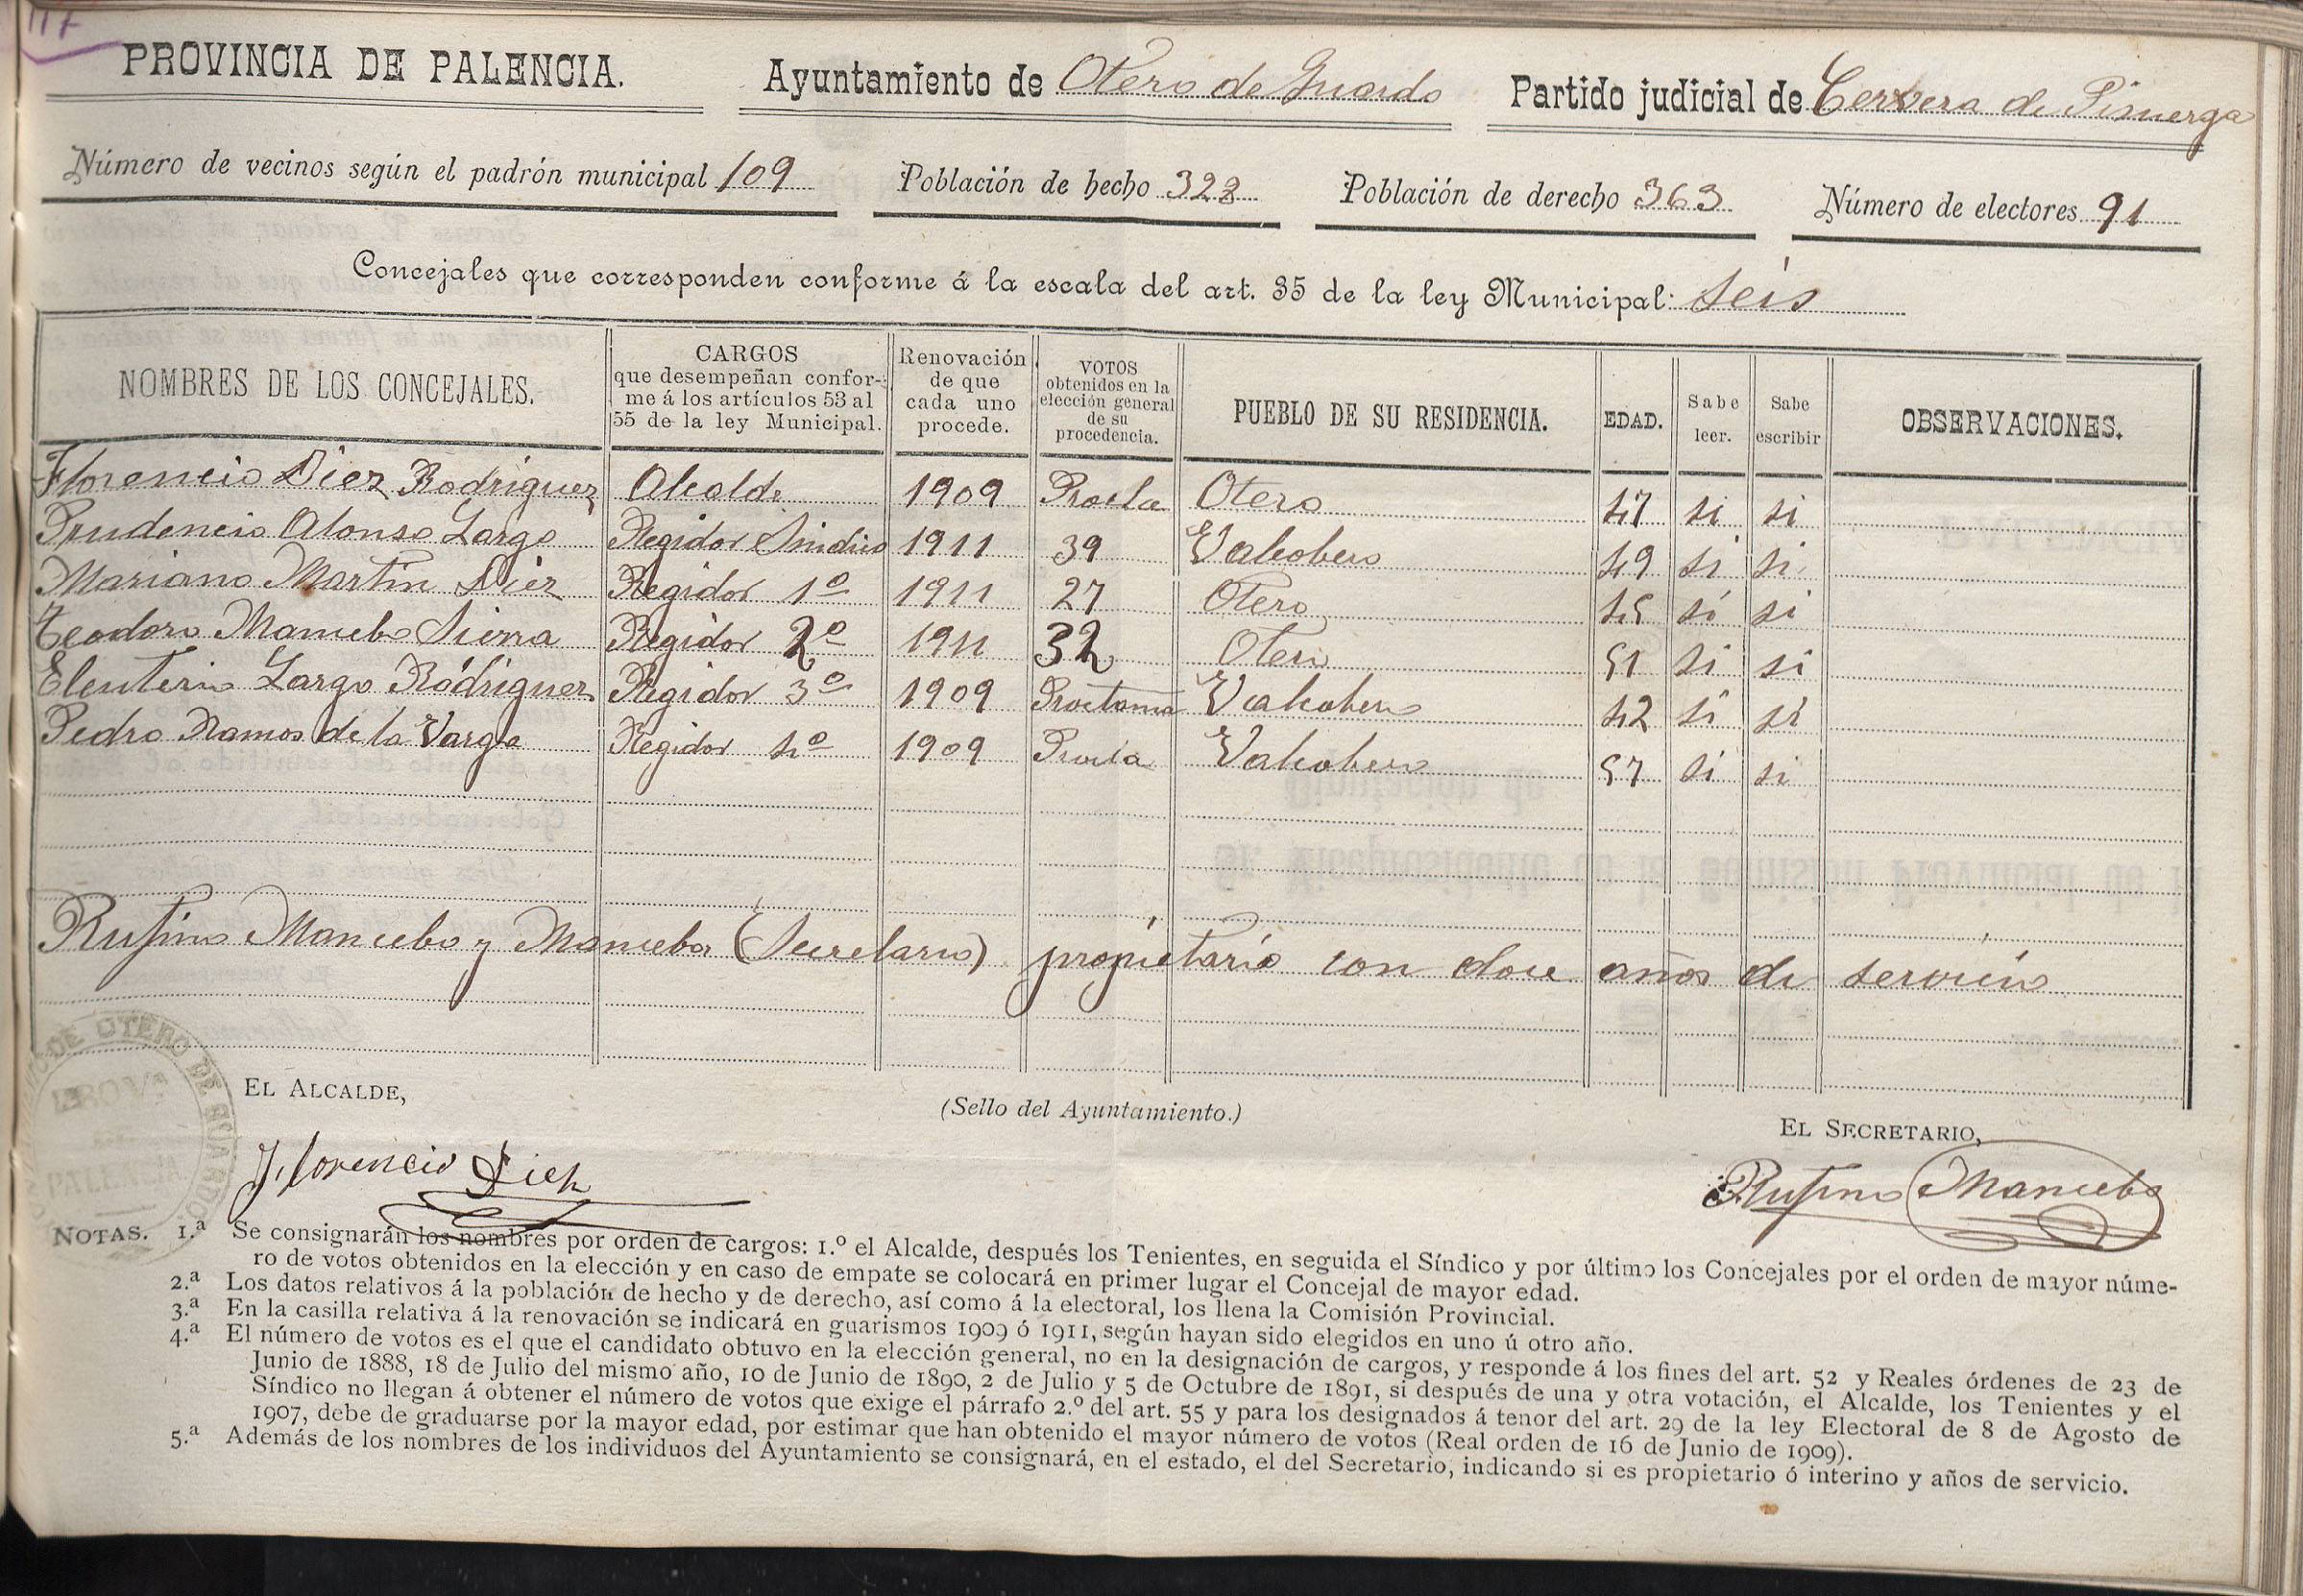 117
PROVINCIA DE PALENCIA. Ayuntamiento de Otero de Guardo Partido judicial de Cervera de Pisuerga
Número de vecinos según el padrón municipal 109 Población de hecho 328 Población de derecho 363 Número de electores 91
Concejales que corresponden conforme á la escala del art. 35 de la ley Municipal: seis
NOMBRES DE LOS CONCEJALES. CARGOS que desempeñan confor- me á los artículos 53 al 55 de la ley Municipal. Renovación de que cada uno procede. VOTOS obtenidos en la elección general de su procedencia. PUEBLO DE SU RESIDENCIA. EDAD. Sabe leer. Sabe escribir OBSERVACIONES.
Florencio Diez Rodriguez Alcalde 1909 Procla Otero 47 si si
Prudencio Alonso Largo Regidor Sindico 1911 39 Valcobero 49 si si
Mariano Martin Diez Regidor 1º 1911 27 Otero 45 si si
Teodoro Mancebo Sierra Regidor 2º 1911 32 Otero 51 si si
Eleuterio Largo Rodriguez Regidor 3º 1909 Proclama Valcobero 42 si si
Pedro Ramos de la Varga Regidor 4º 1909 Procla Valcobero 57 si si
Rufino Mancebo y Mancebo (Secretario) propietario con doce años de servicio
DE OTERO DE GUARDO
PROVª
DE
PALENCIA
EL ALCALDE,
(Sello del Ayuntamiento.)
EL SECRETARIO,
Florencio Diez
Rufino Mancebo
NOTAS. 1.ª Se consignarán los nombres por orden de cargos: 1.º el Alcalde, después los Tenientes, en seguida el Síndico y por último los Concejales por el orden de mayor núme-
ro de votos obtenidos en la elección y en caso de empate se colocará en primer lugar el Concejal de mayor edad.
2.ª Los datos relativos á la población de hecho y de derecho, así como á la electoral, los llena la Comisión Provincial.
3.ª En la casilla relativa á la renovación se indicará en guarismos 1909 ó 1911, según hayan sido elegidos en uno ú otro año.
4.ª El número de votos es el que el candidato obtuvo en la elección general, no en la designación de cargos, y responde á los fines del art. 52 y Reales órdenes de 23 de
Junio de 1888, 18 de Julio del mismo año, 10 de Junio de 1890, 2 de Julio y 5 de Octubre de 1891, si después de una y otra votación, el Alcalde, los Tenientes y el
Síndico no llegan á obtener el número de votos que exige el párrafo 2.º del art. 55 y para los designados á tenor del art. 29 de la ley Electoral de 8 de Agosto de
1907, debe de graduarse por la mayor edad, por estimar que han obtenido el mayor número de votos (Real orden de 16 de Junio de 1909).
5.ª Además de los nombres de los individuos del Ayuntamiento se consignará, en el estado, el del Secretario, indicando si es propietario ó interino y años de servicio.